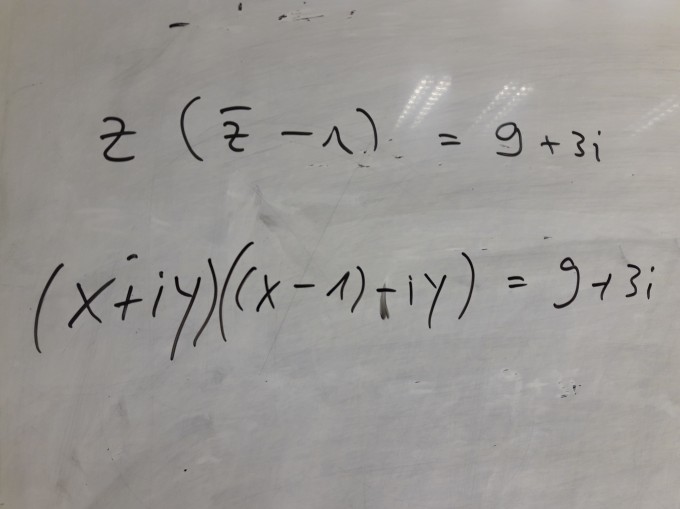 z (z̄ - 1) = 9 + 3i
(x + iy)((x - 1) - iy) = 9 + 3i